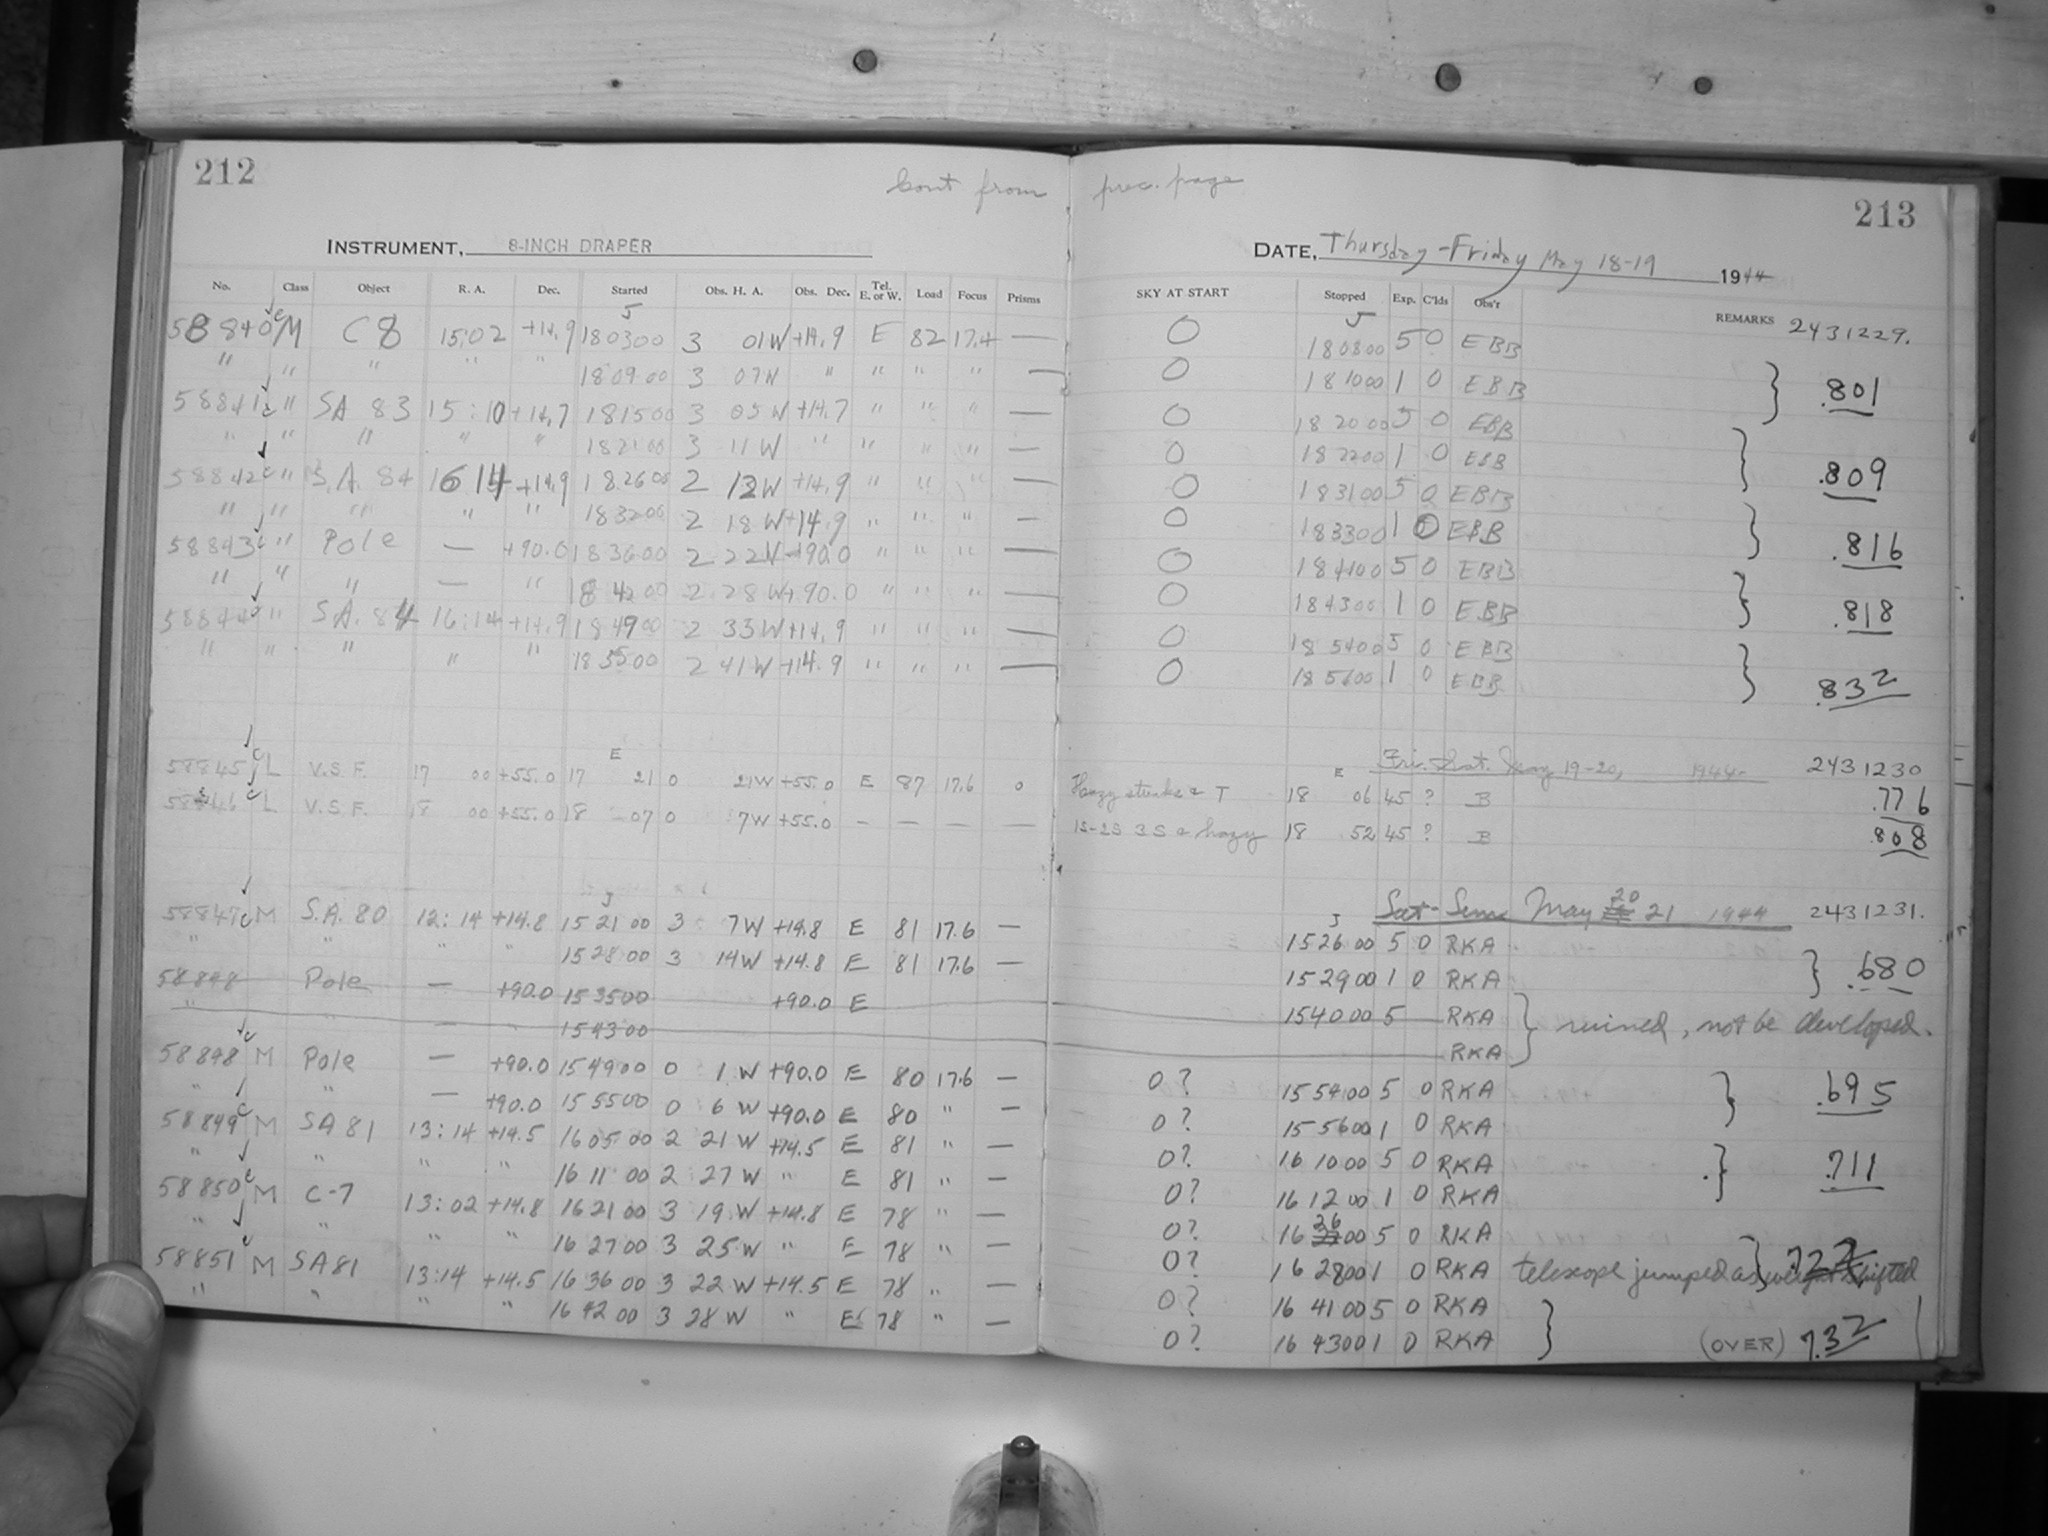 212
Cont from prec. page
213
INSTRUMENT, 8-INCH DRAPER
DATE, Thursday-Friday May 18-19 1944
No. Class Object R. A. Dec. Started Obs. H. A. Obs. Dec. Tel. E. or W. Load Focus Prisms SKY AT START Stopped Exp. C'lds Obs'r REMARKS 2431229.
J J
58840 M C8 15:02 +14.9 180300 3 01W +14.9 E 82 17.4 — 0 180800 5 0 EBB
" " " " " 180900 3 07W " " " " — 0 181000 1 0 EBB } .801
58841 " SA 83 15:10 +14.7 181500 3 05W +14.7 " " " — 0 182000 5 0 EBB
" " " " " 182100 3 11W " " " " — 0 182200 1 0 EBB } .809
58842 " S.A. 84 1614 +14.9 182600 2 12W +14.9 " " " — 0 183100 5 0 EBB
" " " " " 183200 2 18W +14.9 " " " — 0 183300 1 0 EBB } .816
58843 " Pole — +90.0 183600 2 22W +90.0 " " " — 0 184100 5 0 EBB
" " " — " 184200 2 28W +90.0 " " " — 0 184300 1 0 EBB } .818
58844 " S.A. 84 16:14 +14.9 184900 2 33W +14.9 " " " — 0 185400 5 0 EBB
" " " " " 185500 2 41W +14.9 " " " — 0 185600 1 0 EBB } .832
E E Fri. Sat. May 19-20, 1944 2431230
58845 L V.S.F. 17 00 +55.0 17 21 0 21W +55.0 E 87 17.6 0 Hazy streaks & T 18 06 45 ? B .776
58846 L V.S.F. 18 00 +55.0 18 07 0 7W +55.0 — — — — 1S-2S 3S & hazy 18 52 45 ? B .808
J J Sat-Sun May 20 21 1944 2431231.
58847 M S.A. 80 12:14 +14.8 152100 3 7W +14.8 E 81 17.6 — 152600 5 0 RKA
" " " " 152800 3 14W +14.8 E 81 17.6 — 152900 1 0 RKA } .680
58848 Pole — +90.0 153500 +90.0 E 154000 5 RKA
" " — " 154300 RKA } ruined, not be developed.
58848 M Pole — +90.0 154900 0 1W +90.0 E 80 17.6 — 0? 155400 5 0 RKA
" " — +90.0 155500 0 6W +90.0 E 80 " — 0? 155600 1 0 RKA } .695
58849 M SA 81 13:14 +14.5 160500 2 21W +14.5 E 81 " — 0? 161000 5 0 RKA
" " " " 161100 2 27W " E 81 " — 0? 161200 1 0 RKA } .711
58850 M C-7 13:02 +14.8 162100 3 19W +14.8 E 78 " — 0? 16 26 00 5 0 RKA
" " " " 162700 3 25W " E 78 " — 0? 162800 1 0 RKA telescope jumped as weight shifted } .722
58851 M SA81 13:14 +14.5 163600 3 22W +14.5 E 78 " — 0? 164100 5 0 RKA
" " " " 164200 3 28W " E 78 " — 0? 164300 1 0 RKA } (OVER) .732